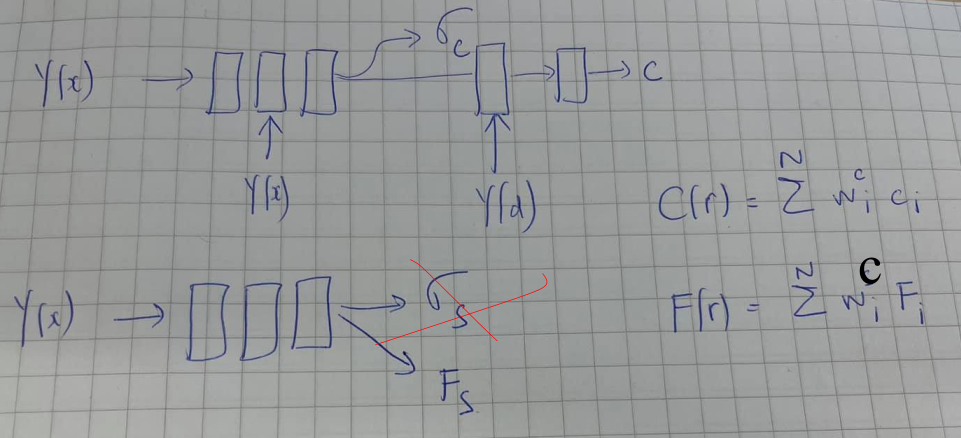 Y(x) → → σ_c → → c
Y(x) Y(d)
C(r) = Σ^N w_i^c c_i
Y(x) → → σ_s
F(r) = Σ^N w_i^c F_i
F_s